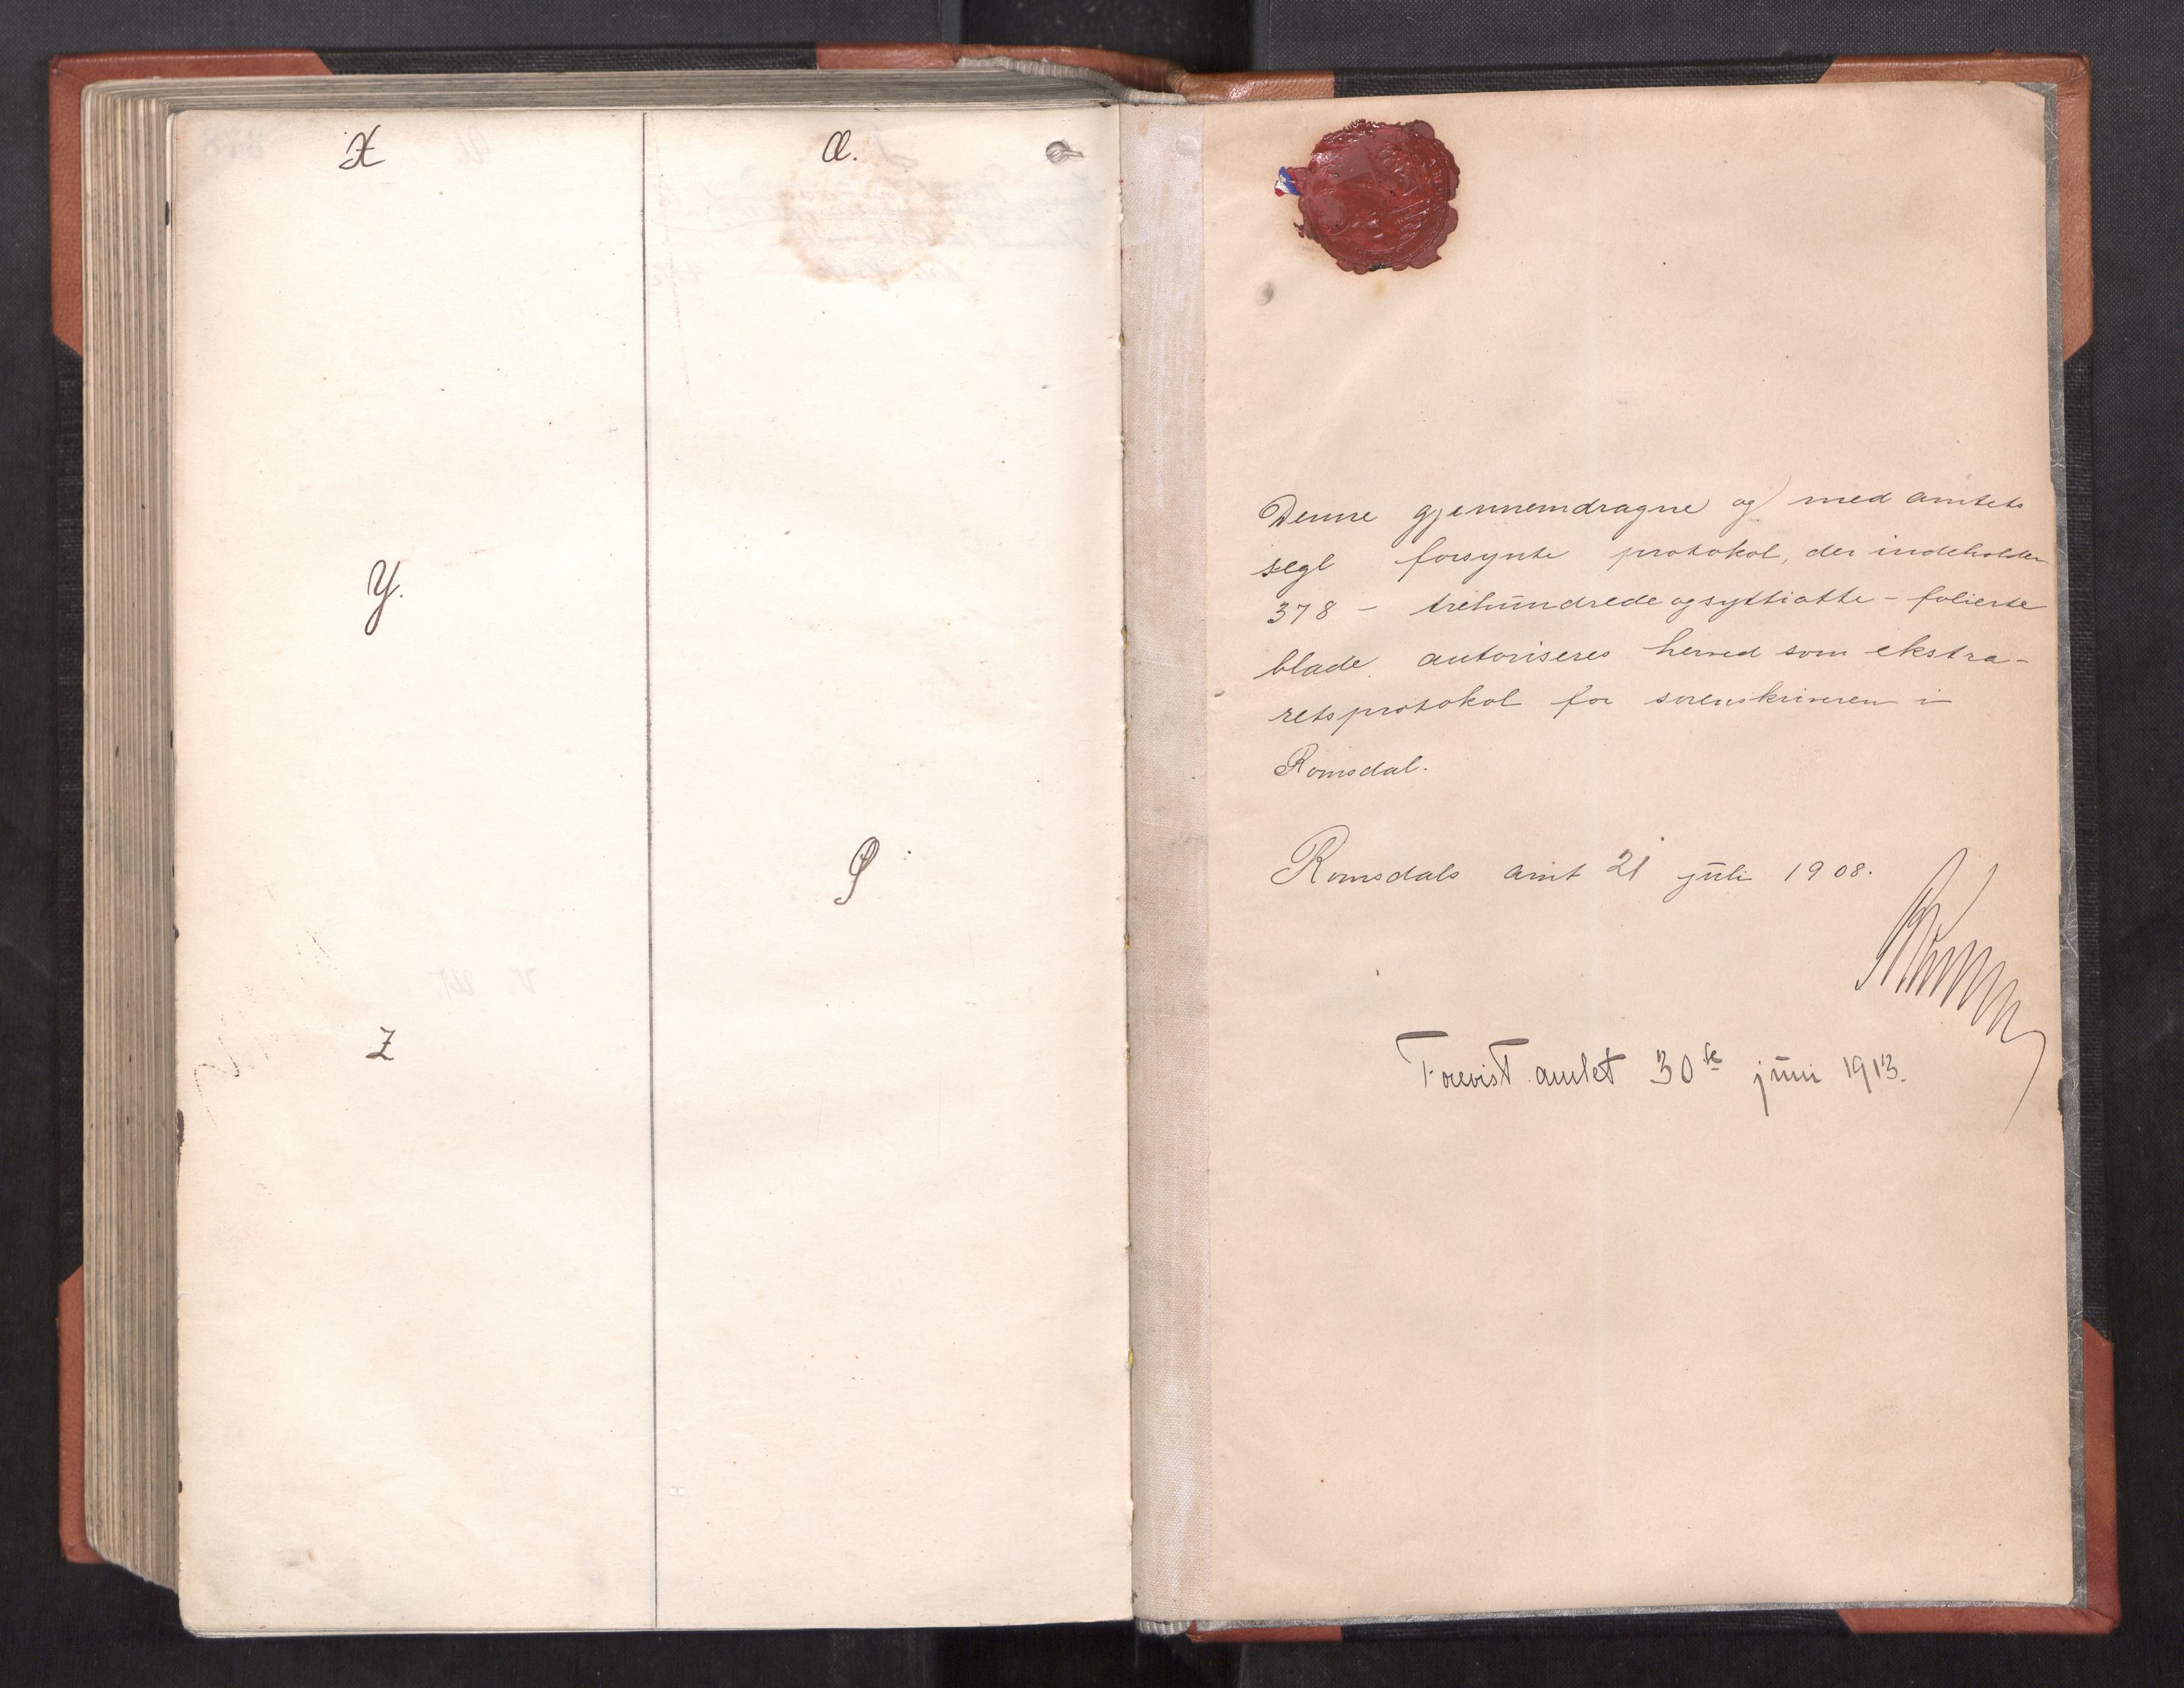 X
Y.
Z
Æ.
Ø
Denne gjennemdragne og med amtets
segl forsynte protokol, der indeholder
378 – trehundredeogsyttiotte – folierte
blade autoriseres herved som ekstra-
retsprotokol for sorenskriveren i
Romsdal.
Romsdals amt 21 juli 1908.
Forevist amtet 30te juni 1913.